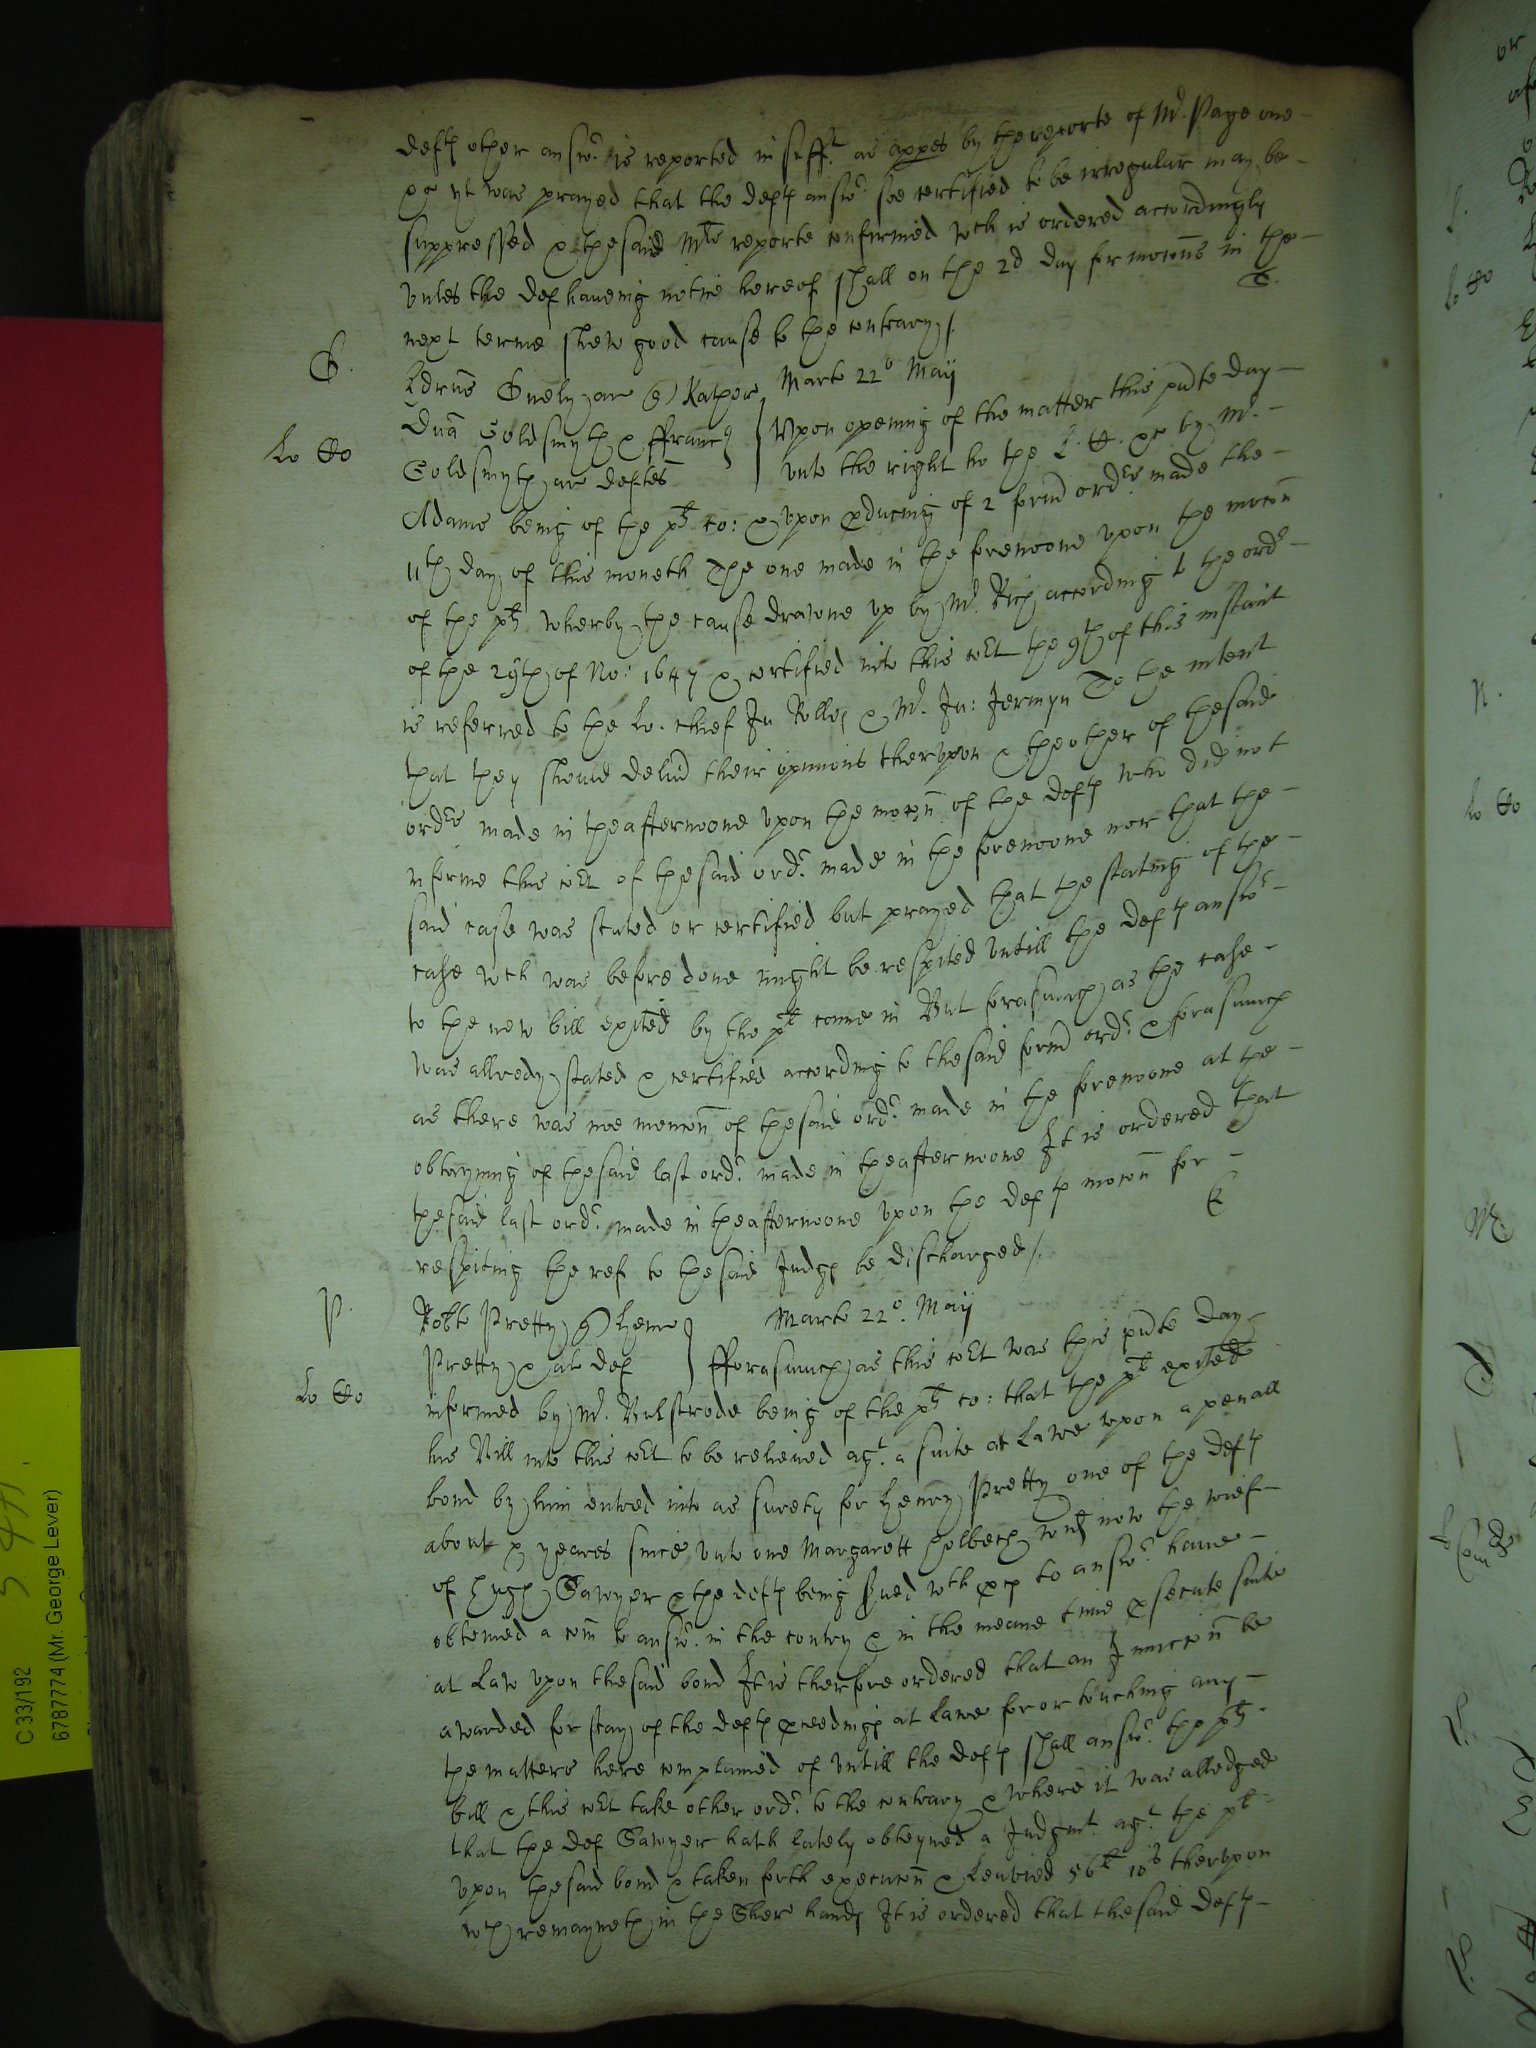 defts other answ.r is reported insuff.t as appes by the reporte of Mr. Page one
&c yt was prayed that the defts answ.r soe certified to be irregular may be
suppressed & the said Mrs reporte confirmed wch is ordered accordingly
unles the def haveing notice hereof shall on the 2d day for mocons in the
next terme shew good cause to the contrary /.
G.
Edrus Evelyn ar Kather
Marte 22o Maij
Dna Goldsmyth & ffranc
Upon opening of the matter this pnte day
Lo Co
Goldsmyth ar deftes
unto the right ho the L. C. &c by Mr.
Adams being of the plts co: & upon pducing of 2 form ordrs made the
11th day of this moneth The one made in the forenoone upon the mocon
of the plts wherby the cause drawne up by Mr. Rich according to the ordr
of the 29th of No: 1647 & certified into this cort the 9th of this instant
is referred to the Lo. chief Ju Rolle & Mr. Ju: Jermyn To the intent
that they should deliv their opinions therupon & the other of the said
ordrs made in the afternoone upon the mocon of the defts who did not
informe this cort of the said ordr. made in the forenoone nor that the
said case was stated or certified but prayed that the stating of the
case wch was before done might be respited untill the defts answr
to the new bill exited by the plt come in But forasmuch as the case
was allredy stated & certified according to the said form ordr. & forasmuch
as there was noe mencon of the said ordr. made in the forenoone at the
obteyning of the said last ordr. made in the afternoone It is ordered that
the said last ordr. made in the afternoone upon the defts mocon for
respiting the ref to the said Judgs be discharged /.
P.
Robte Pretty Henr
Marte 22o. Maij
Pretty & al def
fforasmuch as this cort was this pnte day
Lo Co
informed by Mr. Bulstrode being of the plts co: that the plt exited
his Bill into this cort to be relieved agt. a suite at Lawe upon a penall
bond by him entred into as surety for Henry Pretty one of the defts
about yeares since unto one Margarett Holbech now the wief
of Hugh Sawyer & the defts being sued wth pcs to answr. have
obteined a com to answr. in the contry & in the meane time psecute suite
at Law upon the said bond It is therfore ordered that an Iniuncon be
awarded for stay of the defts pceedings at Lawe for or touching any
the matters here complained of untill the defts shall answr. the plts
bill & this cort take other ordr. to the contrary & where it was alledged
that the def Sawyer hath lately obteyned a Judgmt. agt. the plt
upon the said bond & taken forth execucon & Leavied 56l 10s therupon
wch remayneth in the Sher hands It is ordered that the said defts
C 33/192
6787774 (Mr. George Lever)